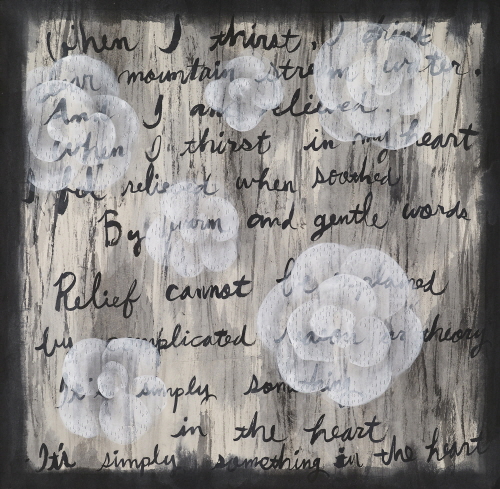 When I thirst, I drink
mountain stream water.
And I am relieved.
When I thirst in my heart
I feel relieved when soothed
By warm and gentle words
Relief cannot be explained
by complicated reason or theory
It is simply something
in the heart
It's simply something in the heart